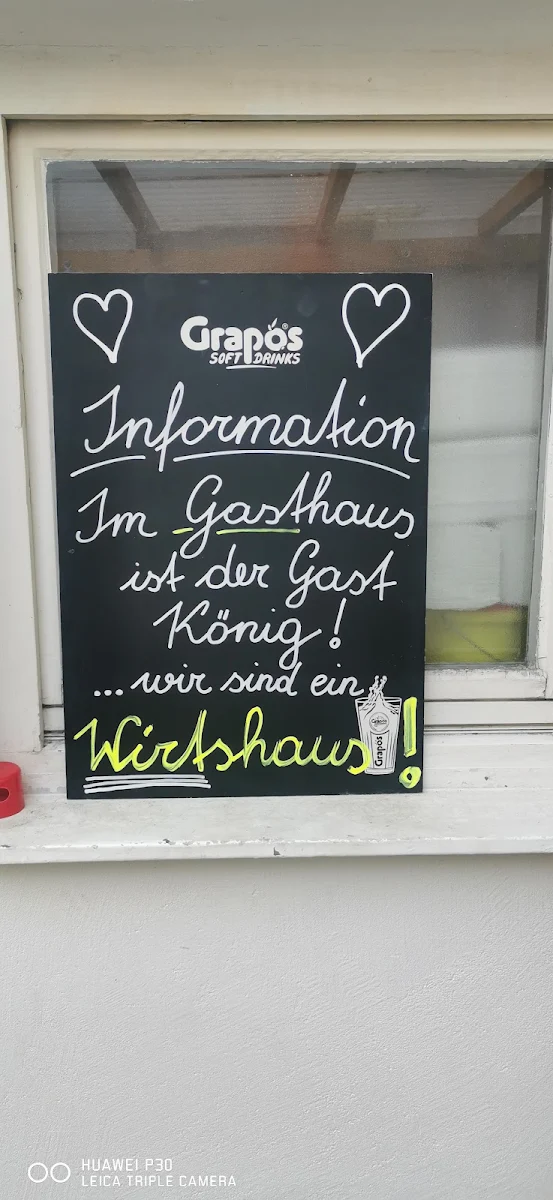 Grapos®
SOFT DRINKS
Information
Im Gasthaus
ist der Gast
König!
... wir sind ein
Wirtshaus!
Grapos
Grapos
HUAWEI P30
LEICA TRIPLE CAMERA